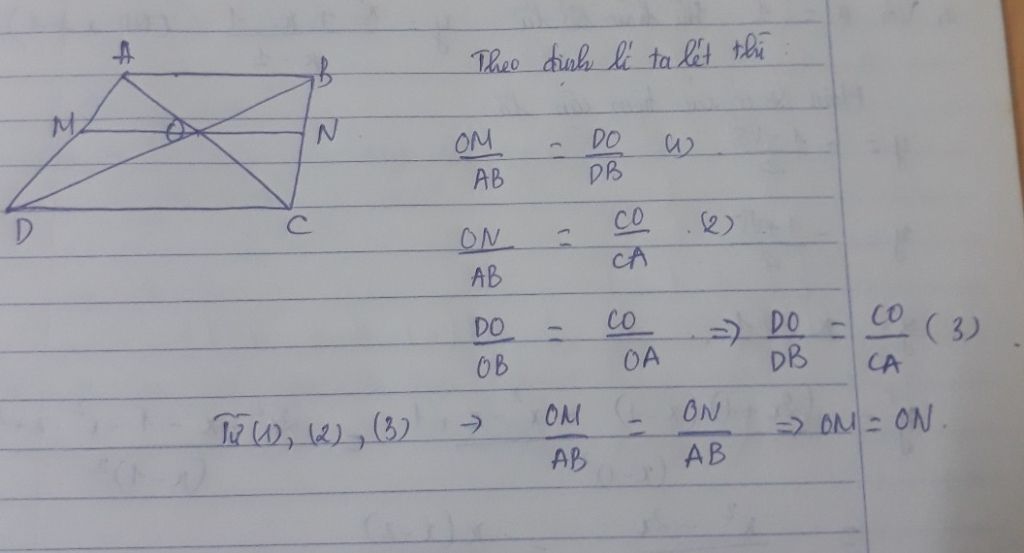 A
B
M
O
N
D
C
Theo định lí ta lét thì:
OM/AB = DO/DB (1)
ON/AB = CO/CA (2)
DO/OB = CO/OA => DO/DB = CO/CA (3)
Từ (1), (2), (3) → OM/AB = ON/AB => OM = ON.